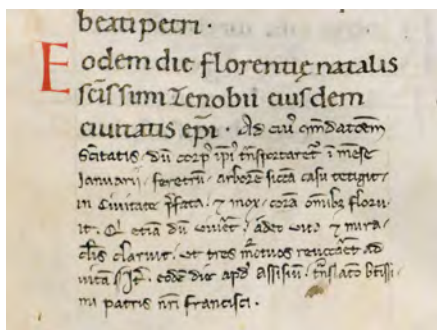 beati petri ·
Eodem die florentię natalis
scissimi Zenobii eiusdem
ciuitatis epi · Ad cui⁹ cm̄datōem
Sc̄itatis · dū corp⁹ ip̄i⁹ tn̄sportaret̄ ī mēse
Ianuarii · feretrū · arborē siccā casu tetigit ·
in Ciuitate p̄fata · ⁊ mox · corā omib⁹ floru
it · etiā dū uiu͛et · adeo uit⁹ ⁊ mira
cl̄is claruit · ut tres m̄tuos reuocāet ad
uitā · It̄ · eodē die apd̄ assisiū · tn̄slatō btīssi
mi patris nr̄i francisci ·